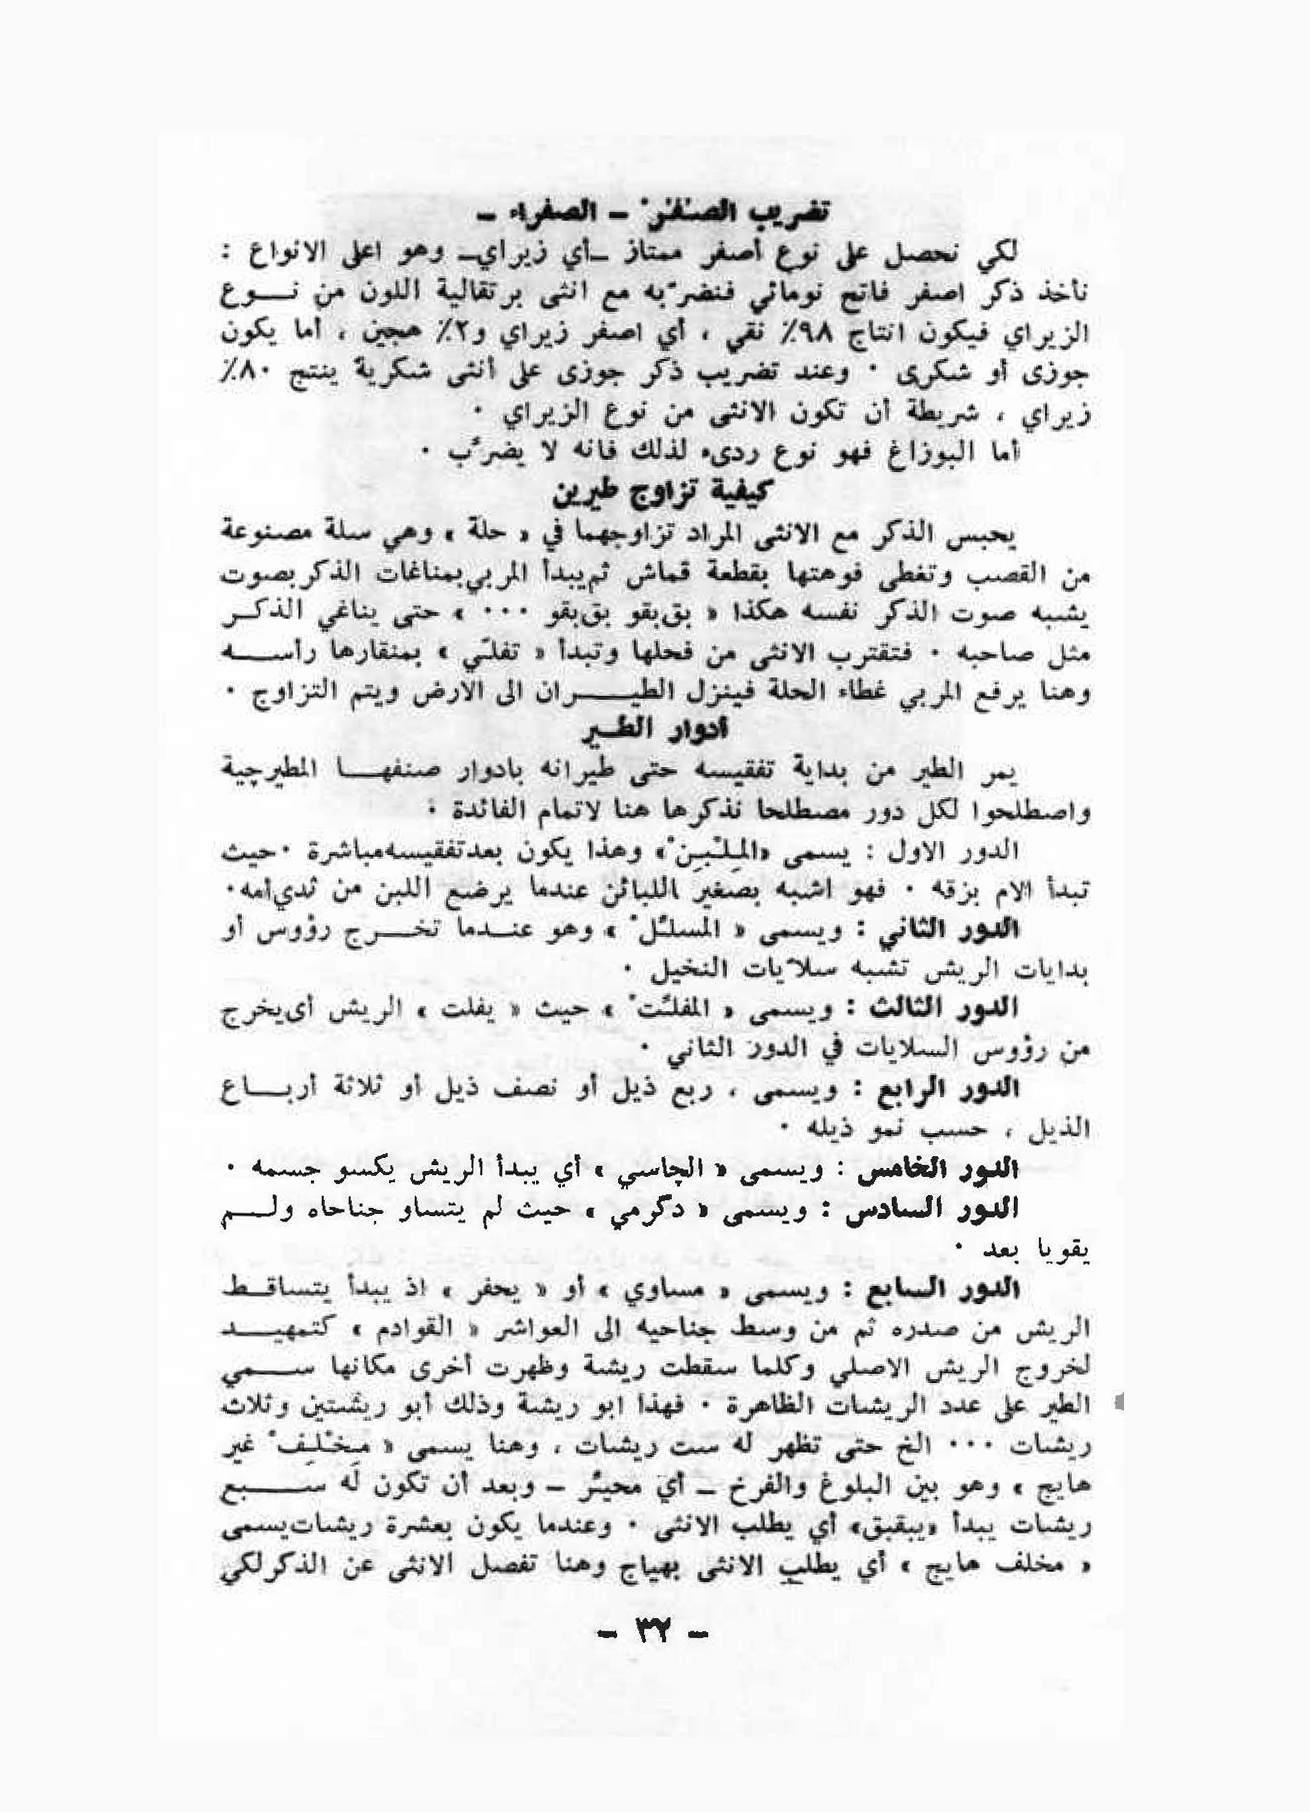 تضريب الصنفر° – الصفراء –
لكي نحصل على نوع أصفر ممتاز –أي زيراي– وهو اعلى الانواع :
نأخذ ذكر اصفر فاتح نومائي فنضرّبه مع انثى برتقالية اللون من نوع
الزيراي فيكون انتاج ٩٨٪ نقي ، أي اصفر زيراي و٢٪ هجين ، أما يكون
جوزى أو شكرى ٠ وعند تضريب ذكر جوزى على أنثى شكرية ينتج ٨٠٪
زيراي ، شريطة أن تكون الانثى من نوع الزيراي ٠
أما البوزاغ فهو نوع ردىء لذلك فانه لا يضرّب ٠
كيفية تزاوج طيرين
يحبس الذكر مع الانثى المراد تزاوجهما في « حلة » وهي سلة مصنوعة
من القصب وتغطى فوهتها بقطعة قماش ثم يبدأ المربي بمناغات الذكر بصوت
يشبه صوت الذكر نفسه هكذا « بق بقو بق بقو ٠٠٠ » حتى يناغي الذكر
مثل صاحبه ٠ فتقترب الانثى من فحلها وتبدأ « تفلّي » بمنقارها رأسه
وهنا يرفع المربي غطاء الحلة فينزل الطيران الى الارض ويتم التزاوج ٠
أدوار الطير
يمر الطير من بداية تفقيسه حتى طيرانه بادوار صنفها المطيرچية
واصطلحوا لكل دور مصطلحا نذكرها هنا لاتمام الفائدة :
الدور الاول : يسمى «المِلْبِنْ» وهذا يكون بعد تفقيسه مباشرة ٠ حيث
تبدأ الام بزقه ٠ فهو اشبه بصغير اللبائن عندما يرضع اللبن من ثدي أمه٠
الدور الثاني : ويسمى « المسلّلْ » وهو عندما تخرج رؤوس أو
بدايات الريش تشبه سلاّيات النخيل ٠
الدور الثالث : ويسمى « المفلّتْ » حيث « يفلت » الريش أي يخرج
من رؤوس السلايات في الدور الثاني ٠
الدور الرابع : ويسمى ، ربع ذيل أو نصف ذيل أو ثلاثة أرباع
الذيل ، حسب نمو ذيله ٠
الدور الخامس : ويسمى « الچاسي » أي يبدأ الريش يكسو جسمه ٠
الدور السادس : ويسمى « دكرمي » حيث لم يتساو جناحاه ولم
يقويا بعد ٠
الدور السابع : ويسمى « مساوي » أو « يحفر » اذ يبدأ يتساقط
الريش من صدره ثم من وسط جناحيه الى العواشر « القوادم » كتمهيد
لخروج الريش الاصلي وكلما سقطت ريشة وظهرت أخرى مكانها سمي
الطير على عدد الريشات الظاهرة ٠ فهذا ابو ريشة وذلك أبو ريشتين وثلاث
ريشات ٠٠٠ الخ حتى تظهر له ست ريشات ، وهنا يسمى « مَخْلِفْ غير
هايج » وهو بين البلوغ والفرخ – أي محيّر – وبعد أن تكون له سبع
ريشات يبدأ «يبقبق» أي يطلب الانثى ٠ وعندما يكون بعشرة ريشات يسمى
« مخلف هايج » أي يطلب الانثى بهياج وهنا تفصل الانثى عن الذكر لكي
– ٣٢ –